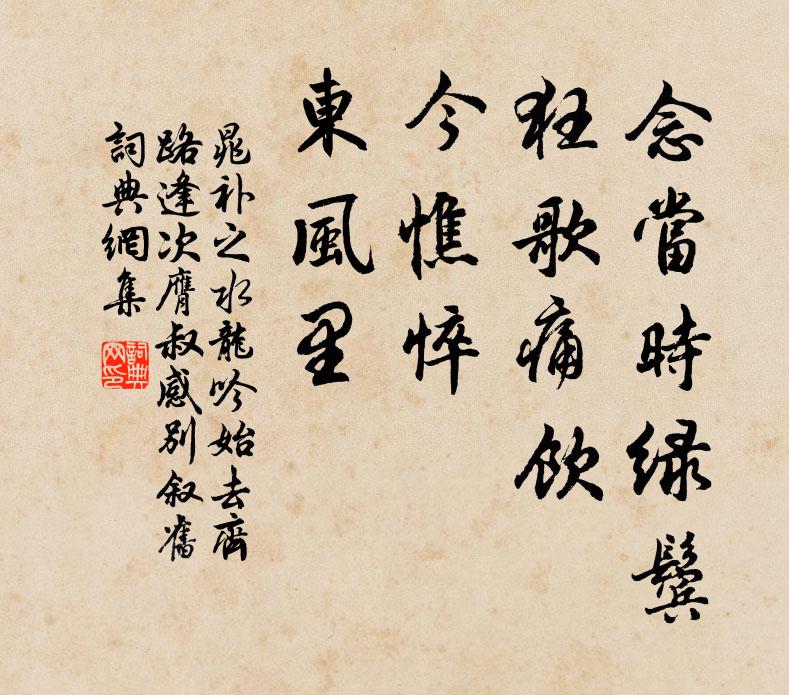 念當時綠鬢
狂歌痛飲
今憔悴
東風里
晁补之水龍吟始去齊
路逢次膺叔感别叙舊
詞典網集
詞典網印